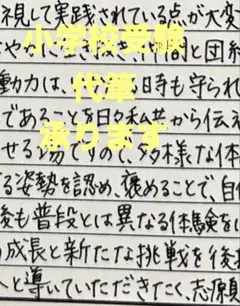 視して実践されている点が大変
小学校受験
やかに生き抜き、仲間と団結
代筆
動力は、る時も守られ
承ります
であることを日々私共から伝え
せる場ですので、多様な体
る姿勢を認め、褒めることで、自
後も普段とは異なる体験を
成長と新たな挑戦を後
へと導いていただきたく、志願